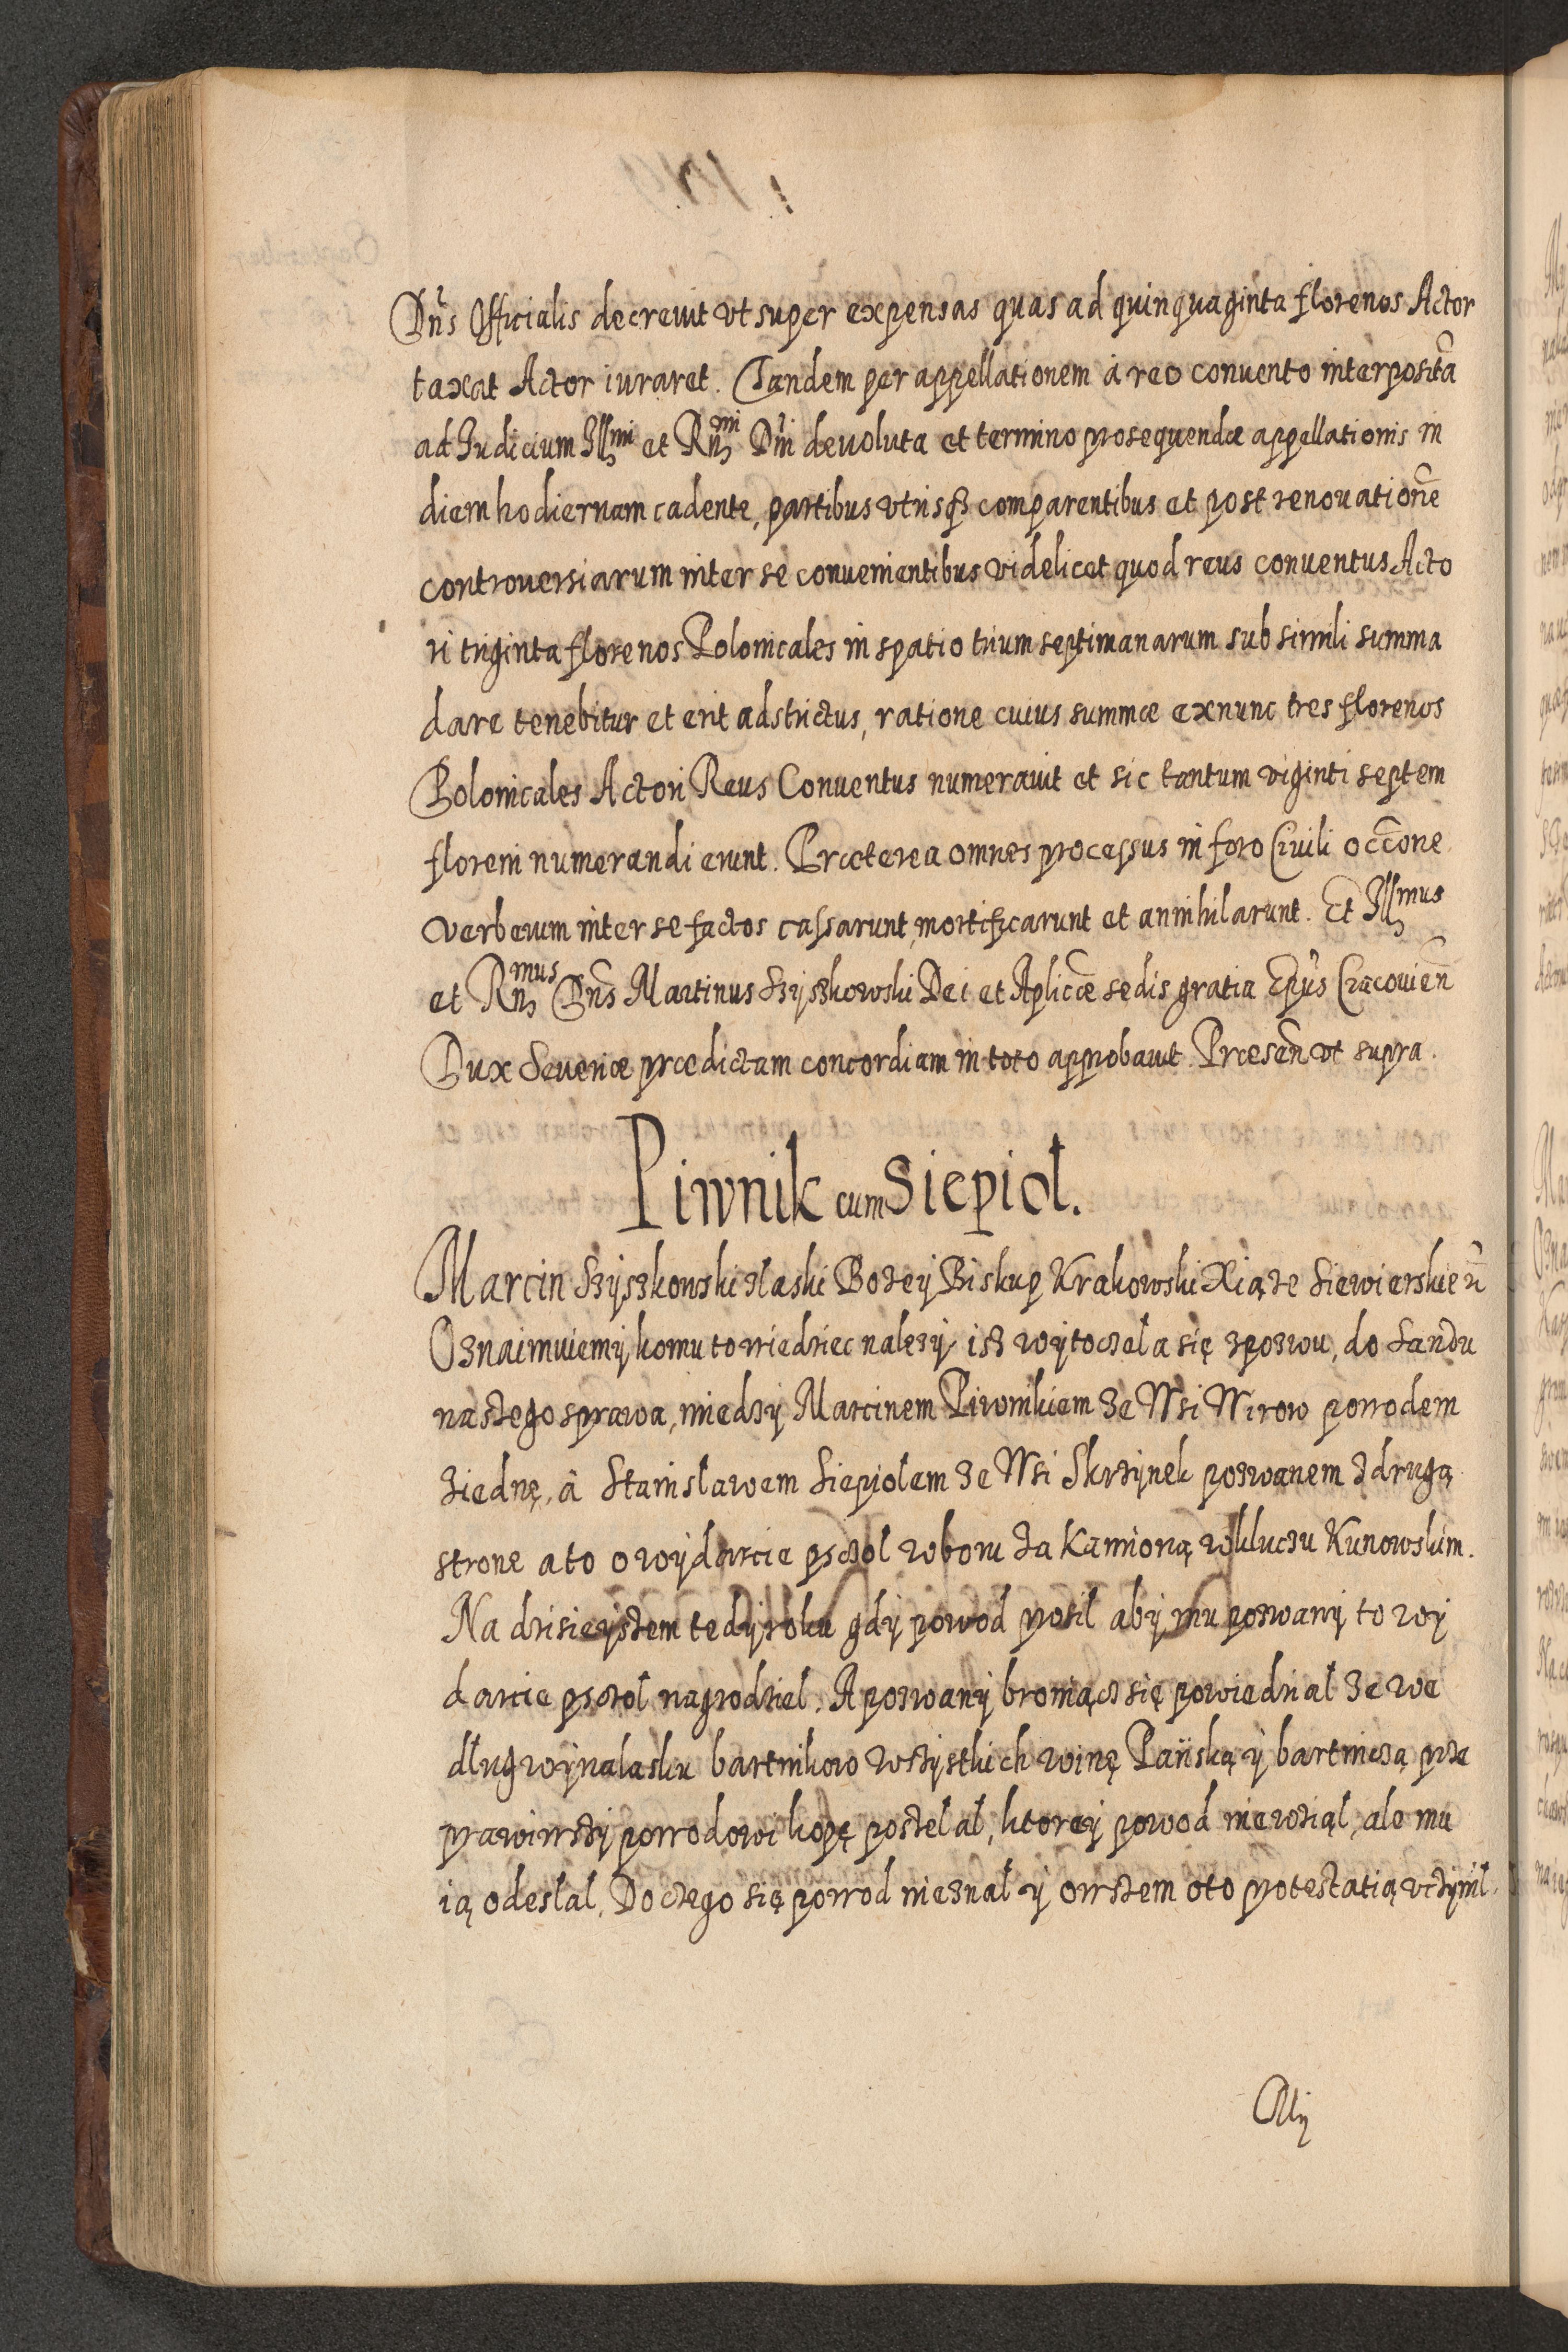 Dñs Officialis decreuit vt super expensas quas ad quinquaginta florenos Actor
taxat Actor iuraret. Tandem per appellationem à reo conuento interposita͂
ad Iudicium Illmi et Rnmi Dñi deuoluta et termino prosequendæ appellationis in
diem hodiernam cadente, partibus vtrisqꝫ comparentibus et post renouatione͂
controuersiarum inter se conuenientibus videlicet quod reus conuentus Acto
ri triginta florenos Polonicales in spatio trium septimanarum sub simili summa
dare tenebitur et erit adstrictus, ratione cuius summæ exnunc tres florenos
Polonicales Actori Reus Conuentus numerauit et sic tantum viginti septem
floreni numerandi erunt. Præterea omnes processus in foro Ciuili occ͂one
verberum inter se factos cassarunt, mortificarunt et annihilarunt. Et Illmus
et Rnmus Dñs Martinus Szyszkowski Dei et Aplicæ sedis gratia Epus Cracouien͂
Dux Seueriæ prædictam concordiam in toto approbauit. Præsen͂ vt supra.
Piwnik cum Siepiol.
Marcin Szyszkowski zlaski Bozey Biskup Krakowski Xiąze Siewierskie
Oznaimuiemy komu to wiedziec nalezy, isz wytoczela się zpozwu, do Sandu
naszego sprawa, miedzy Marcinem Piwnikiem ze Wsi Wirow powodem
ziednę, à Stanislawem Siepiolem ze Wsi Skrzynek pozwanem zdrugą
strone a to o wydarcie psczol wboru za Kamioną wkluczu Kunowskim.
Na dzisieyszem tedy roku gdy powod prosil aby mu pozwany to wy
darcie psczol nagrodziel. A pozwany broniącz się powiedzial ze we
dlug wynalasku bartnikow wszystkich winę Pańską y bartniczą prze
prawiwszy powodowi kopę poslelal, ktorey powod niewziąl, ale mu
ią odeslal. Do czego się powod nieznal y owszem oto protestatią vczynil.
Aly